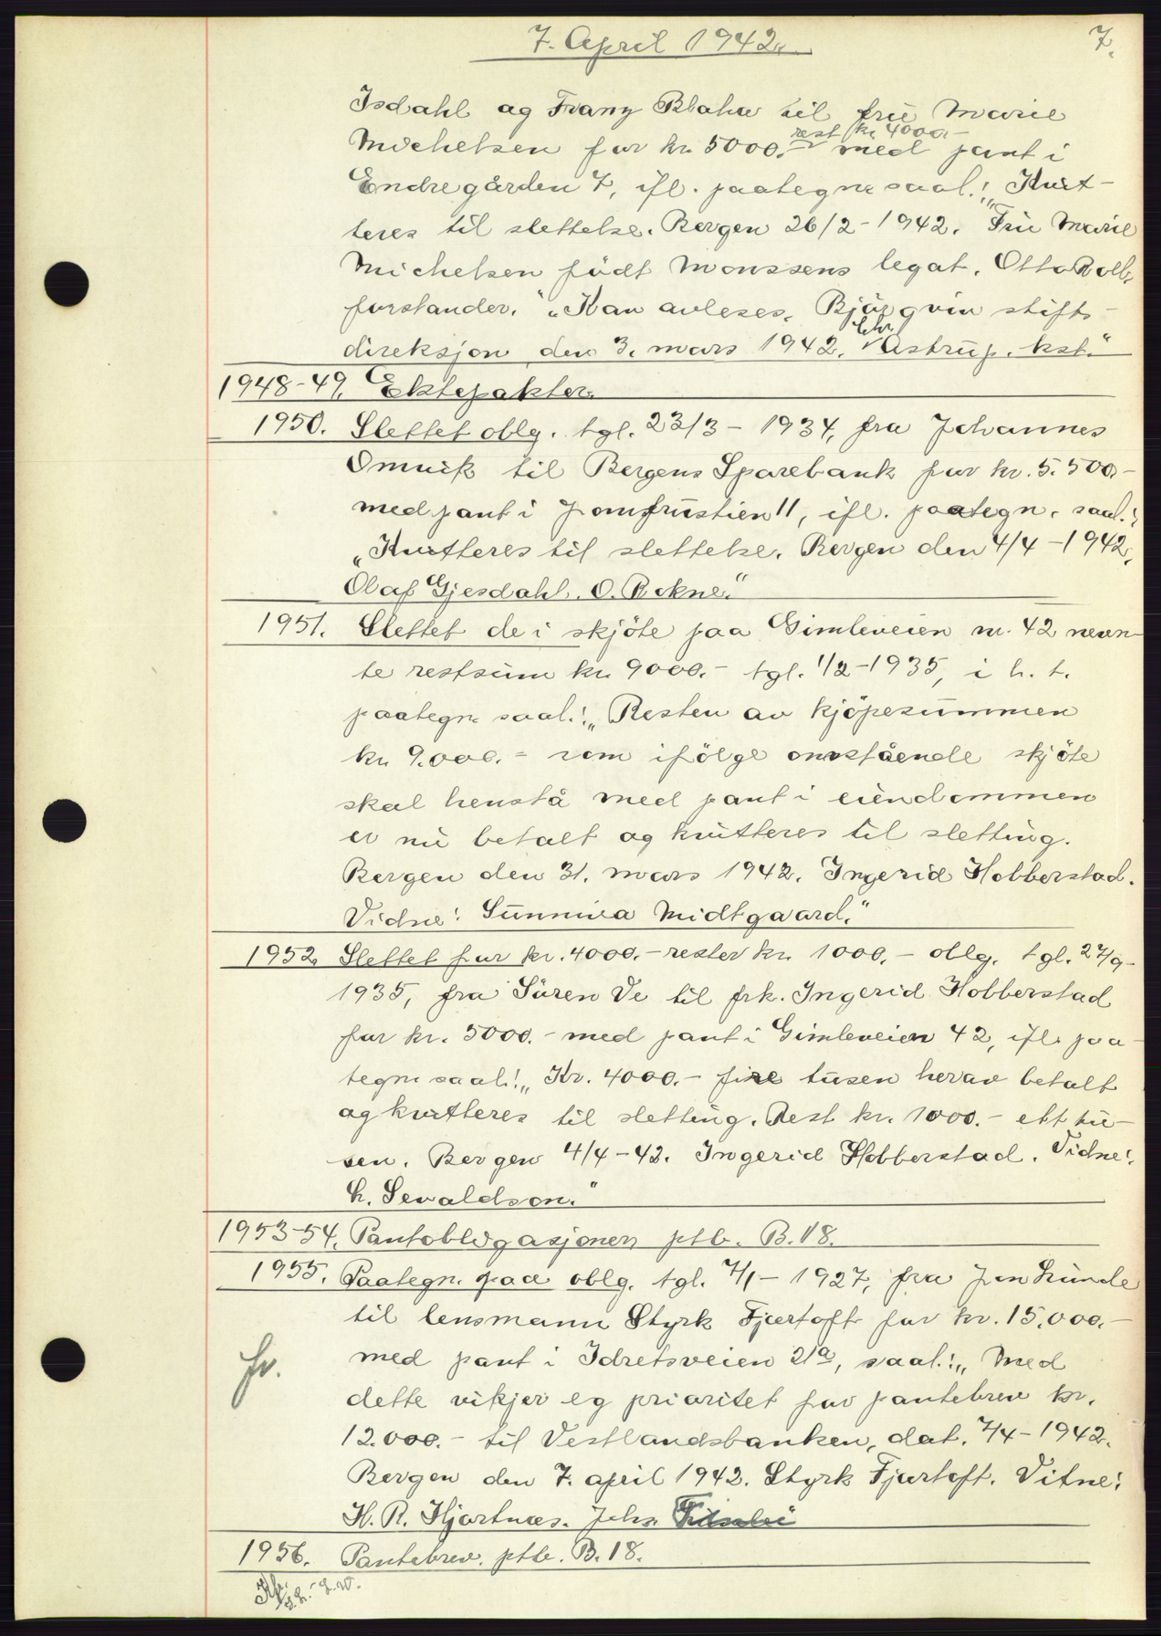 7. April 1942.
7.
Isdahl og Franz Blaha til fru Marie
rest kr 4000.-
Michelsen for kr. 5000.- med pant i
Endregården 7, ifl. paategn. saal.: „Kvit-
teres til slettelse. Bergen 26/2-1942. Fru Marie
Michelsen födt Monssens legat. Otto
forstander." „Kan avleses. Björgvin stifts-
direksjon den 3. mars 1942. Chr. Astrup. kst."
1948-49. Ektepakter.
1950. Slettet oblg. tgl. 23/3-1934, fra Johannes
Omvik til Bergens Sparebank for kr. 5.500.-
med pant i Jomfrustien 11, ifl. paategn. saal.:
„Kvitteres til slettelse. Bergen den 4/4-1942.
Olaf Gjesdahl. O. Rokne."
1951. Slettet de i skjöte paa Gimleveien nr. 42 nevn-
te restsum kr. 9000.- tgl. 1/2-1935, i h. t.
paategn. saal.: „Resten av kjöpesummen
kr. 9.000.- som ifölge omstående skjöte
skal henstå med pant i eiendommen
er nu betalt og kvitteres til sletting.
Bergen den 31. mars 1942. Ingerid Hobberstad.
Vidne: Sunniva Midtgaard."
1952. Slettet for kr. 4000.- rester kr. 1000.- oblg. tgl. 27/9-
1935, fra Sören Ve til frk. Ingerid Hobberstad
for kr. 5000.- med pant i Gimleveien 42, ifl. paa-
tegn. saal.: „Kr. 4000.- fire tusen herav betalt
og kvitteres til sletting. Rest kr. 1000.- ett tu-
sen. Bergen 4/4-42. Ingerid Hobberstad. Vidne:
h. Sevaldson."
1953-54. Pantobligasjoner ptb. B.18.
1955. Paategn. paa oblg. tgl. 7/1-1927, fra Jon Lunde
til lensmann Styrk Fjærtoft for kr. 15.000.-
fr.
med pant i Idretsveien 21a, saal.: „Med
dette vikjer eg prioritet for pantebrev kr.
12.000.- til Vestlandsbanken, dat. 7/4-1942.
Bergen den 7. april 1942. Styrk Fjærtoft. Vitne:
H. R. Hjartnæs. Johs.
1956. Pantebrev. ptb. B.18.